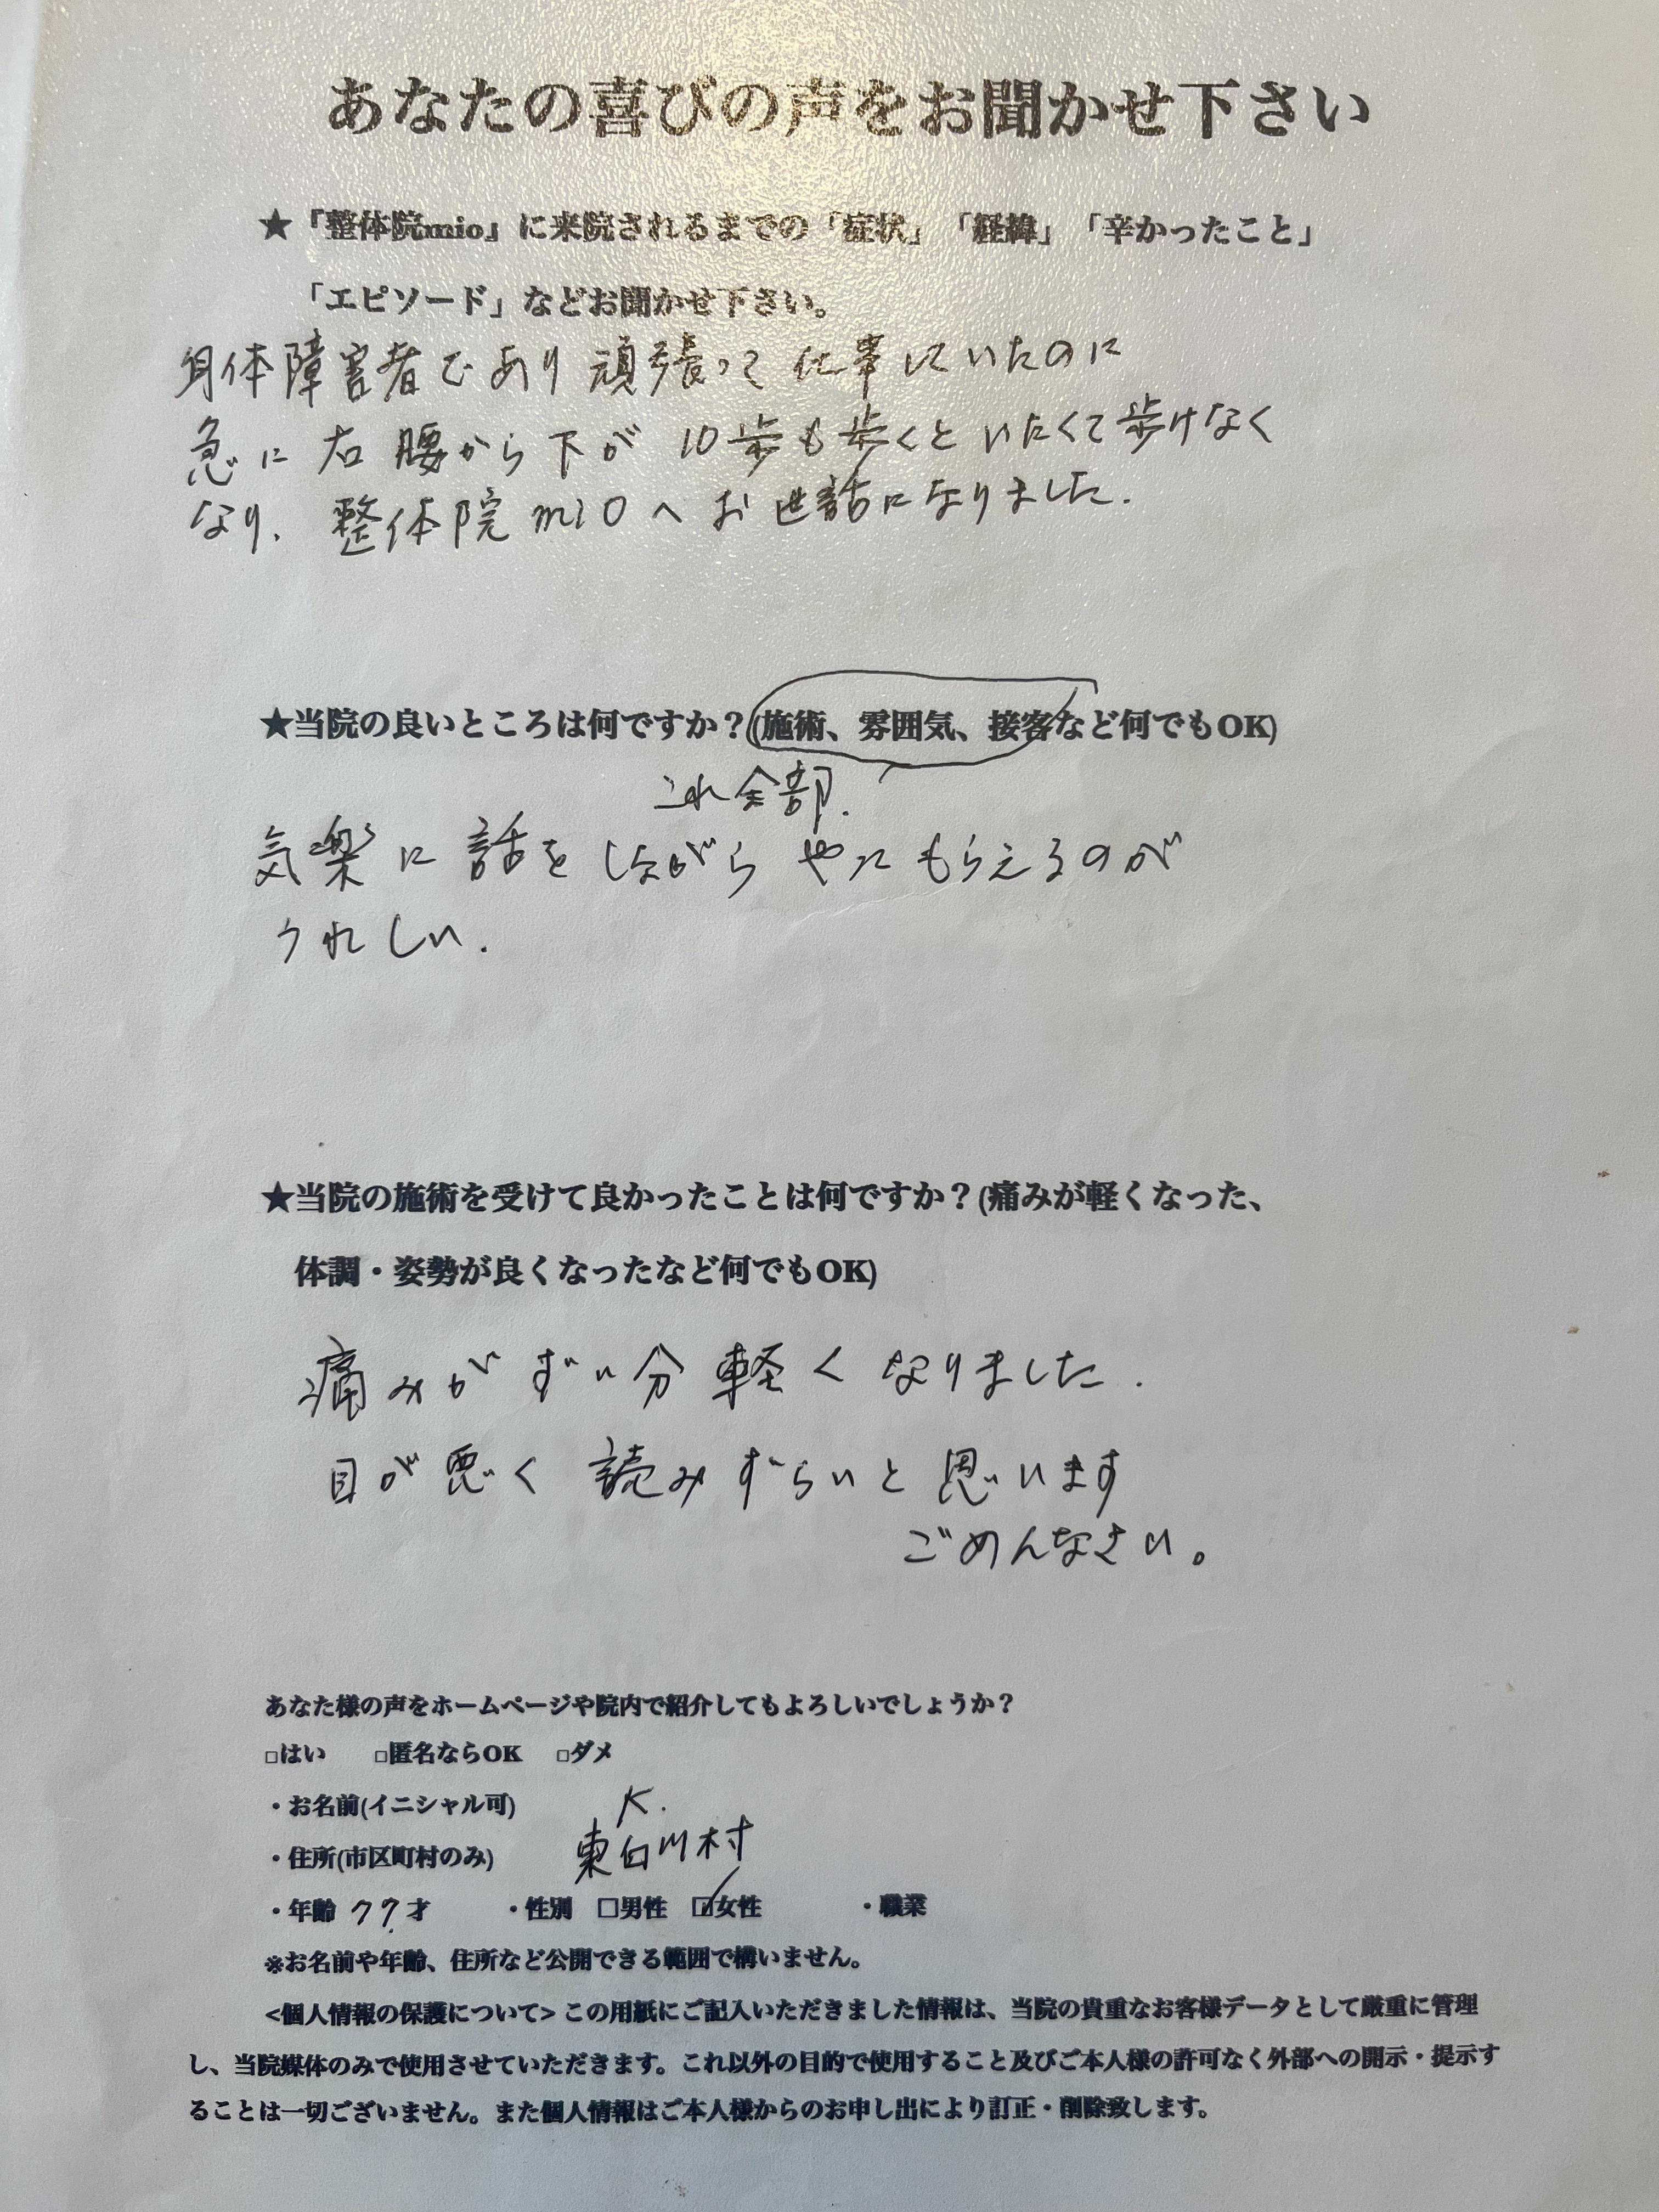 あなたの喜びの声をお聞かせ下さい
★『整体院mio』に来院されるまでの「症状」「経緯」「辛かったこと」
「エピソード」などお聞かせ下さい。
身体障害者であり頑張って仕事していたのに
急に右腰から下が10歩も歩くといたくて歩けなく
なり、整体院mioへお世話になりました.
★当院の良いところは何ですか？(施術、雰囲気、接客など何でもOK)
これ全部.
気楽に話をしながらやってもらえるのが
うれしい.
★当院の施術を受けて良かったことは何ですか？(痛みが軽くなった、
体調・姿勢が良くなったなど何でもOK)
痛みがずい分軽くなりました.
目が悪く読みずらいと思います
ごめんなさい。
あなた様の声をホームページや院内で紹介してもよろしいでしょうか？
□はい □匿名ならOK □ダメ
・お名前(イニシャル可) K.
・住所(市区町村のみ) 東白川村
・年齢 77才 ・性別 □男性 ☑女性 ・職業
※お名前や年齢、住所など公開できる範囲で構いません。
<個人情報の保護について> この用紙にご記入いただきました情報は、当院の貴重なお客様データとして厳重に管理
し、当院媒体のみで使用させていただきます。これ以外の目的で使用すること及びご本人様の許可なく外部への開示・提示す
ることは一切ございません。また個人情報はご本人様からのお申し出により訂正・削除致します。